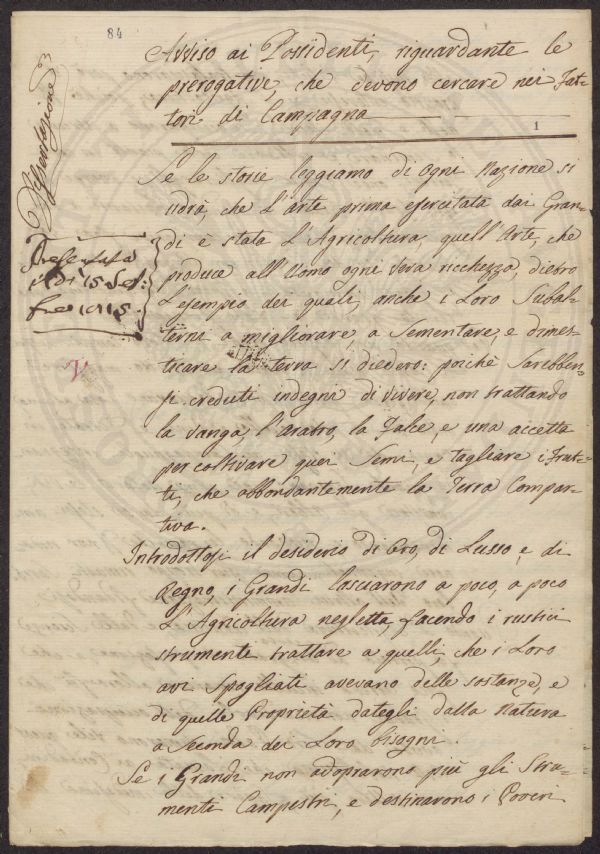 84
Avviso ai Possidenti, riguardante le
prerogative, che devono cercare nei Fat-
tori di Campagna
1
Dissertazione
Presentata
Se le storie leggiamo di ogni Nazione si
udrà, che l'arte prima esercitata dai Gran-
di è stata l'Agricoltura, quell'Arte, che
produce all'Uomo ogni vera ricchezza, dietro
l'esempio dei quali, anche i Loro Subal-
terni a migliorare, a Sementare, e dimes-
ticare la terra si diedero: poichè Sarebben-
si creduti indegni di vivere, non trattando
la vanga, l'aratro, la Falce, e una accetta
per coltivare quei Semi, e tagliare i frut-
ti, che abbondantemente la Terra Compar-
tiva.
Introdottosi il desiderio di Oro, di Lusso, e di
Regno, i Grandi lasciarono a poco, a poco
L'Agricoltura negletta, facendo i rustici
strumenti trattare a quelli, che i Loro
avi Spogliati avevano delle sostanze, e
di quelle Proprietà dategli dalla Natura
a Seconda dei Loro bisogni.
Se i Grandi non adoprarono più gli Stru-
menti Campestri, e destinarono i Poveri